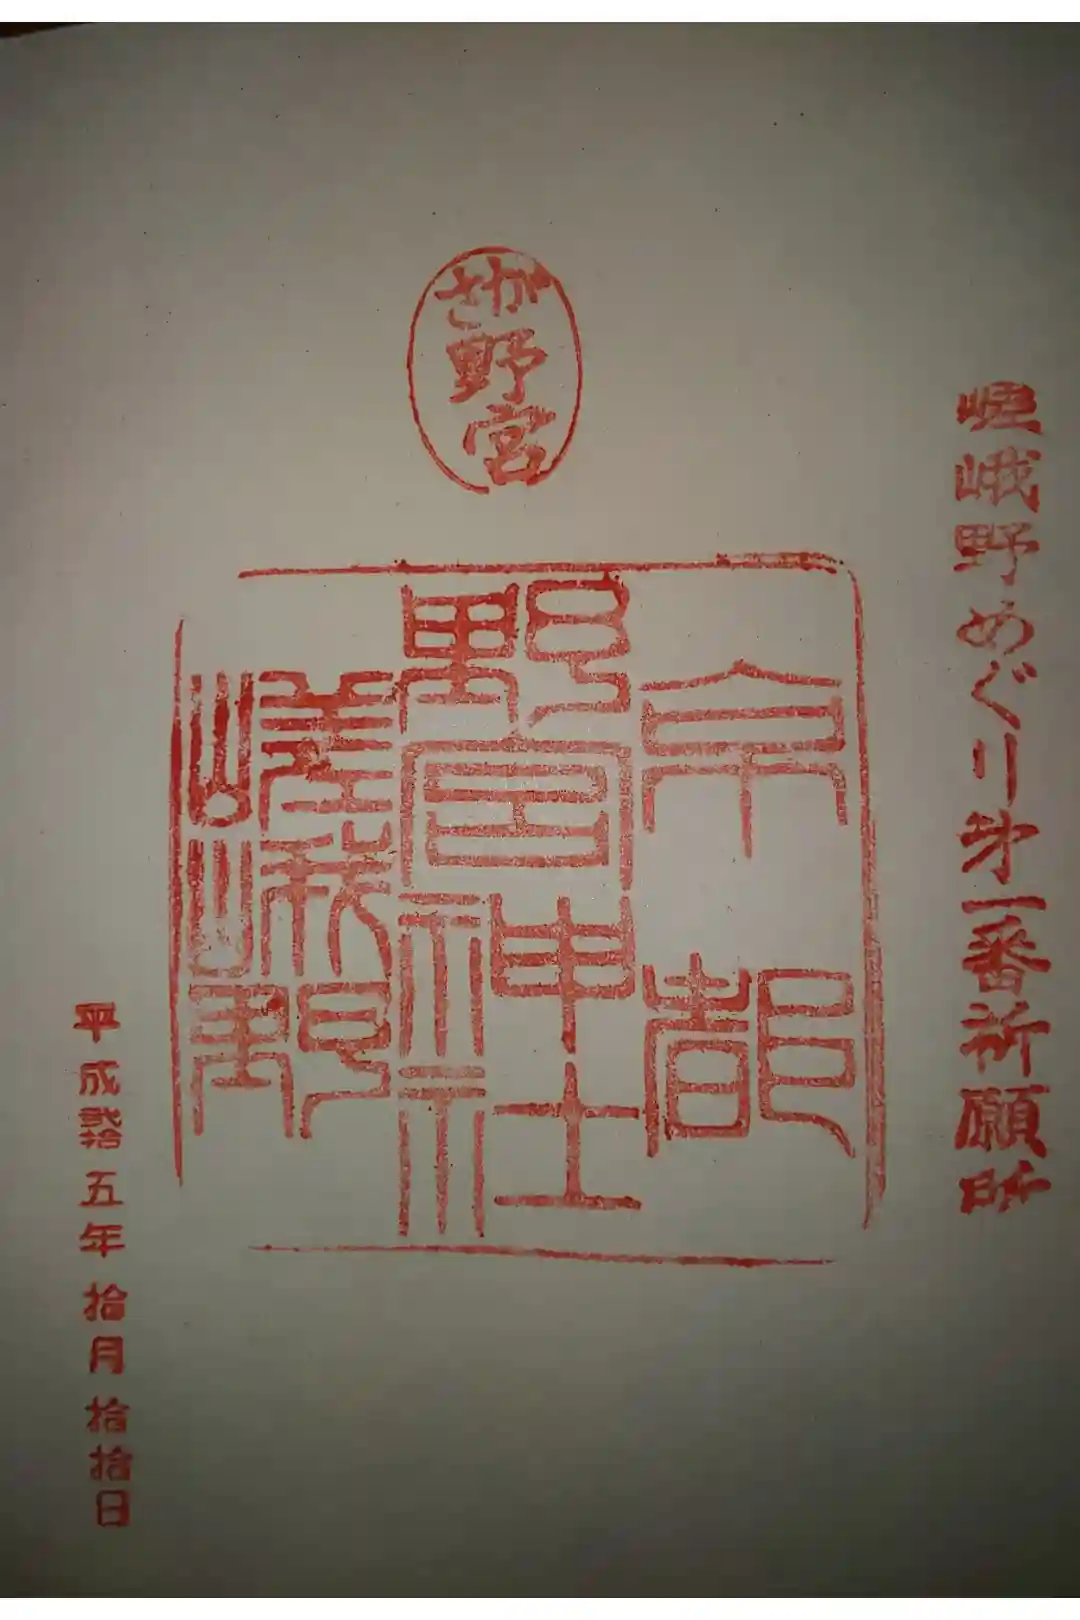 嵯峨野めぐり第一番祈願所
さが
野
宮
京都
野宮神社
嵯峨野
平成弐拾五年拾月拾拾日